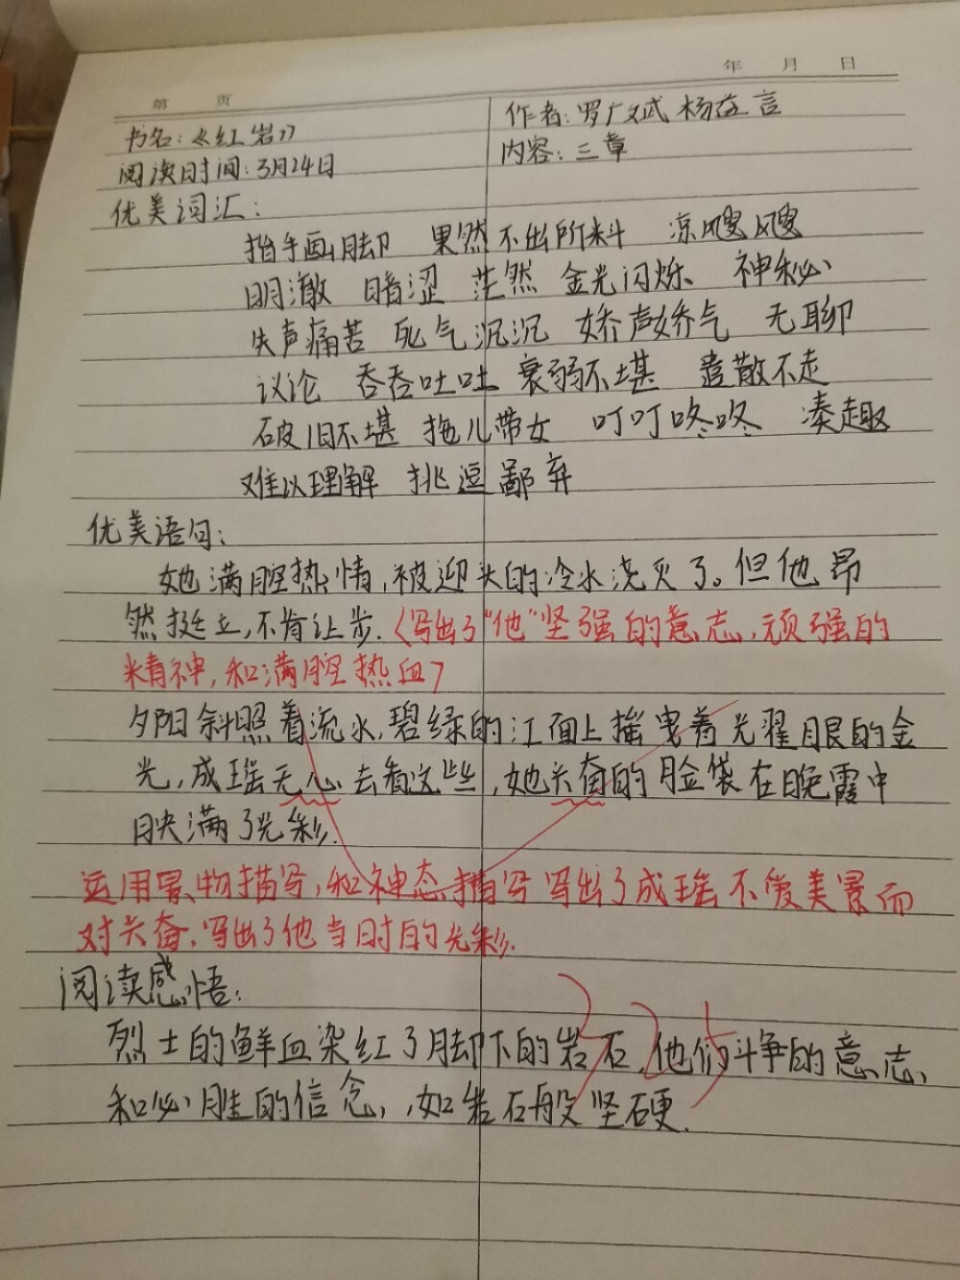 第 页 年 月 日
书名:《红岩》 作者:罗广斌 杨益言
阅读时间:3月24日 内容:三章
优美词汇:
指手画脚 果然不出所料 凉飕飕
明澈 暗涩 茫然 金光闪烁 神秘
失声痛苦 死气沉沉 娇声娇气 无聊
议论 吞吞吐吐 衰弱不堪 遣散不走
破旧不堪 拖儿带女 叮叮咚咚 凑趣
难以理解 挑逗 鄙弃
优美语句:
她满腔热情,被迎头的冷水浇灭了。但他昂
然挺立,不肯让步.(写出了"他"坚强的意志,顽强的
精神,和满腔热血)
夕阳斜照着流水,碧绿的江面上摇曳着光耀眼的金
光,成瑶无心去看这些,她兴奋的脸袋在晚霞中
映满了光彩.
运用景物描写,和神态描写写出了成瑶不爱美景而
对兴奋.写出了他当时的光彩.
阅读感悟:
烈士的鲜血染红了脚下的岩石,他们斗争的意志、
和必胜的信念,,如岩石般坚硬.